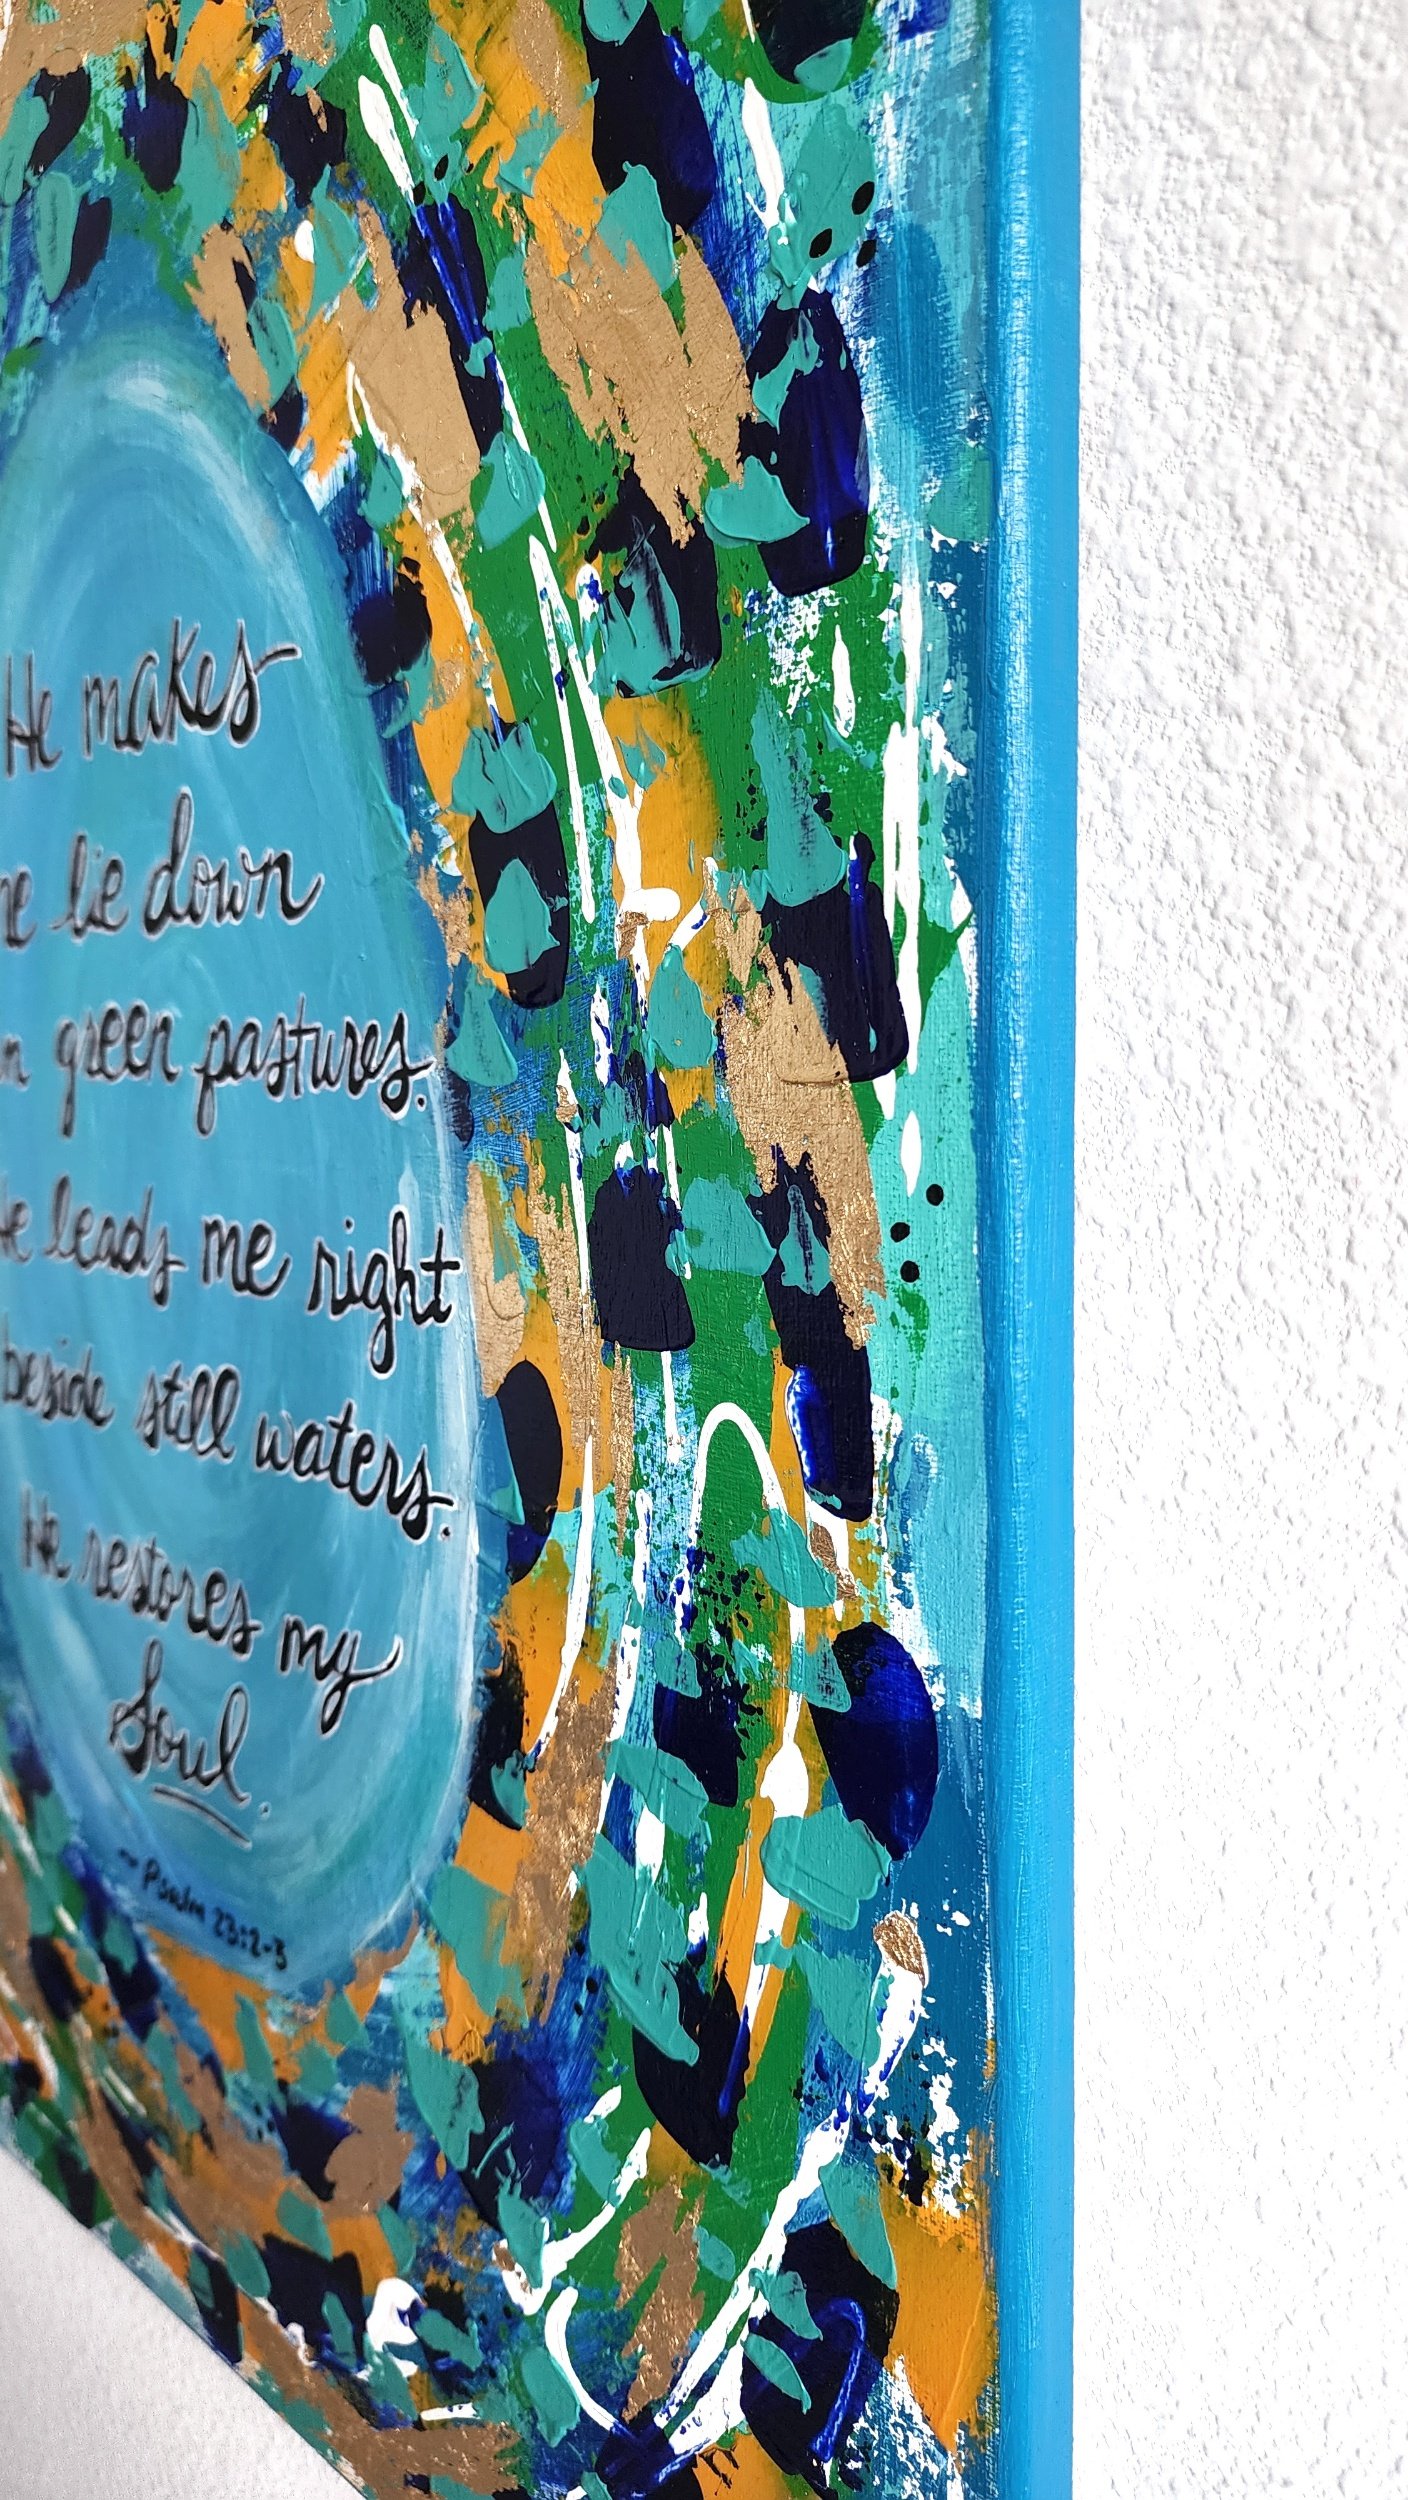 He makes
me lie down
in green pastures.
He leads me right
beside still waters.
He restores my
Soul.
~ Psalm 23:2-3